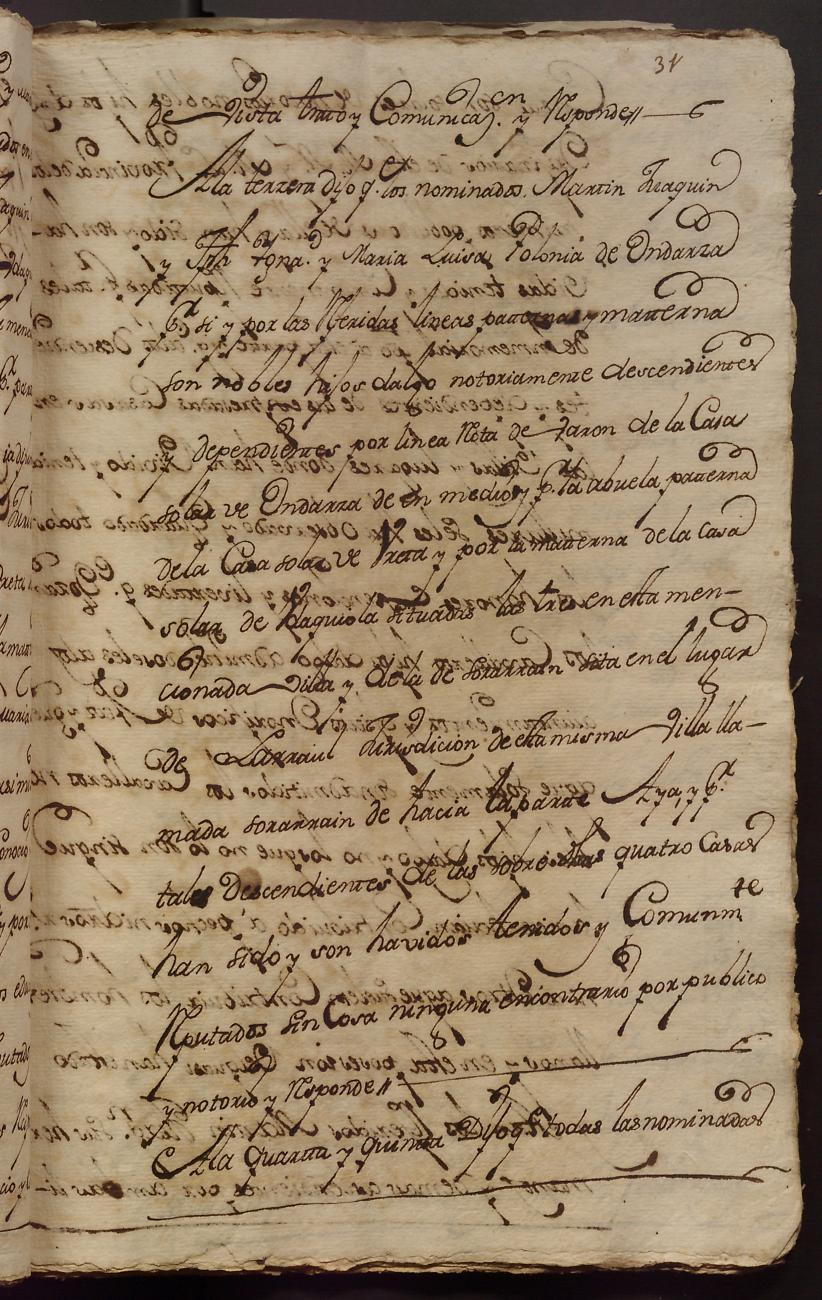 31
de Vista trato y Comunicaz.en y Responde//
A la terzera dijo q.e los nominados Martin Joaquin
y Jph Ygna.o y Maria Luisa Polonia de Ondarza
p.r si y por las Referidas lineas paterna y materna
son nobles hijos dalgo notoriamente descendientes
y dependientes por linea Rēta de Varon de la Casa
solar de Ondarza de en medio, y p.r la abuela paterna
de la Casa solar de Ireta y por la materna de la Casa
solar de Raquiola situadas las tres en esta men-
cionada Villa y de la de Sorarrain sita en el lugar
de Larraul Jurisdicion de esta misma Villa lla-
mada sorarrain de hacia la parte Aya, y p.r
tales Descendientes de las sobre dhas quatro Casas
han sido y son havidos tenidos y Comunm.te
Reputados sin Cosa ninguna encontrario por publico
y notorio y Responde//
A la Quarta y Quinta Dijo q.e todas las nominadas